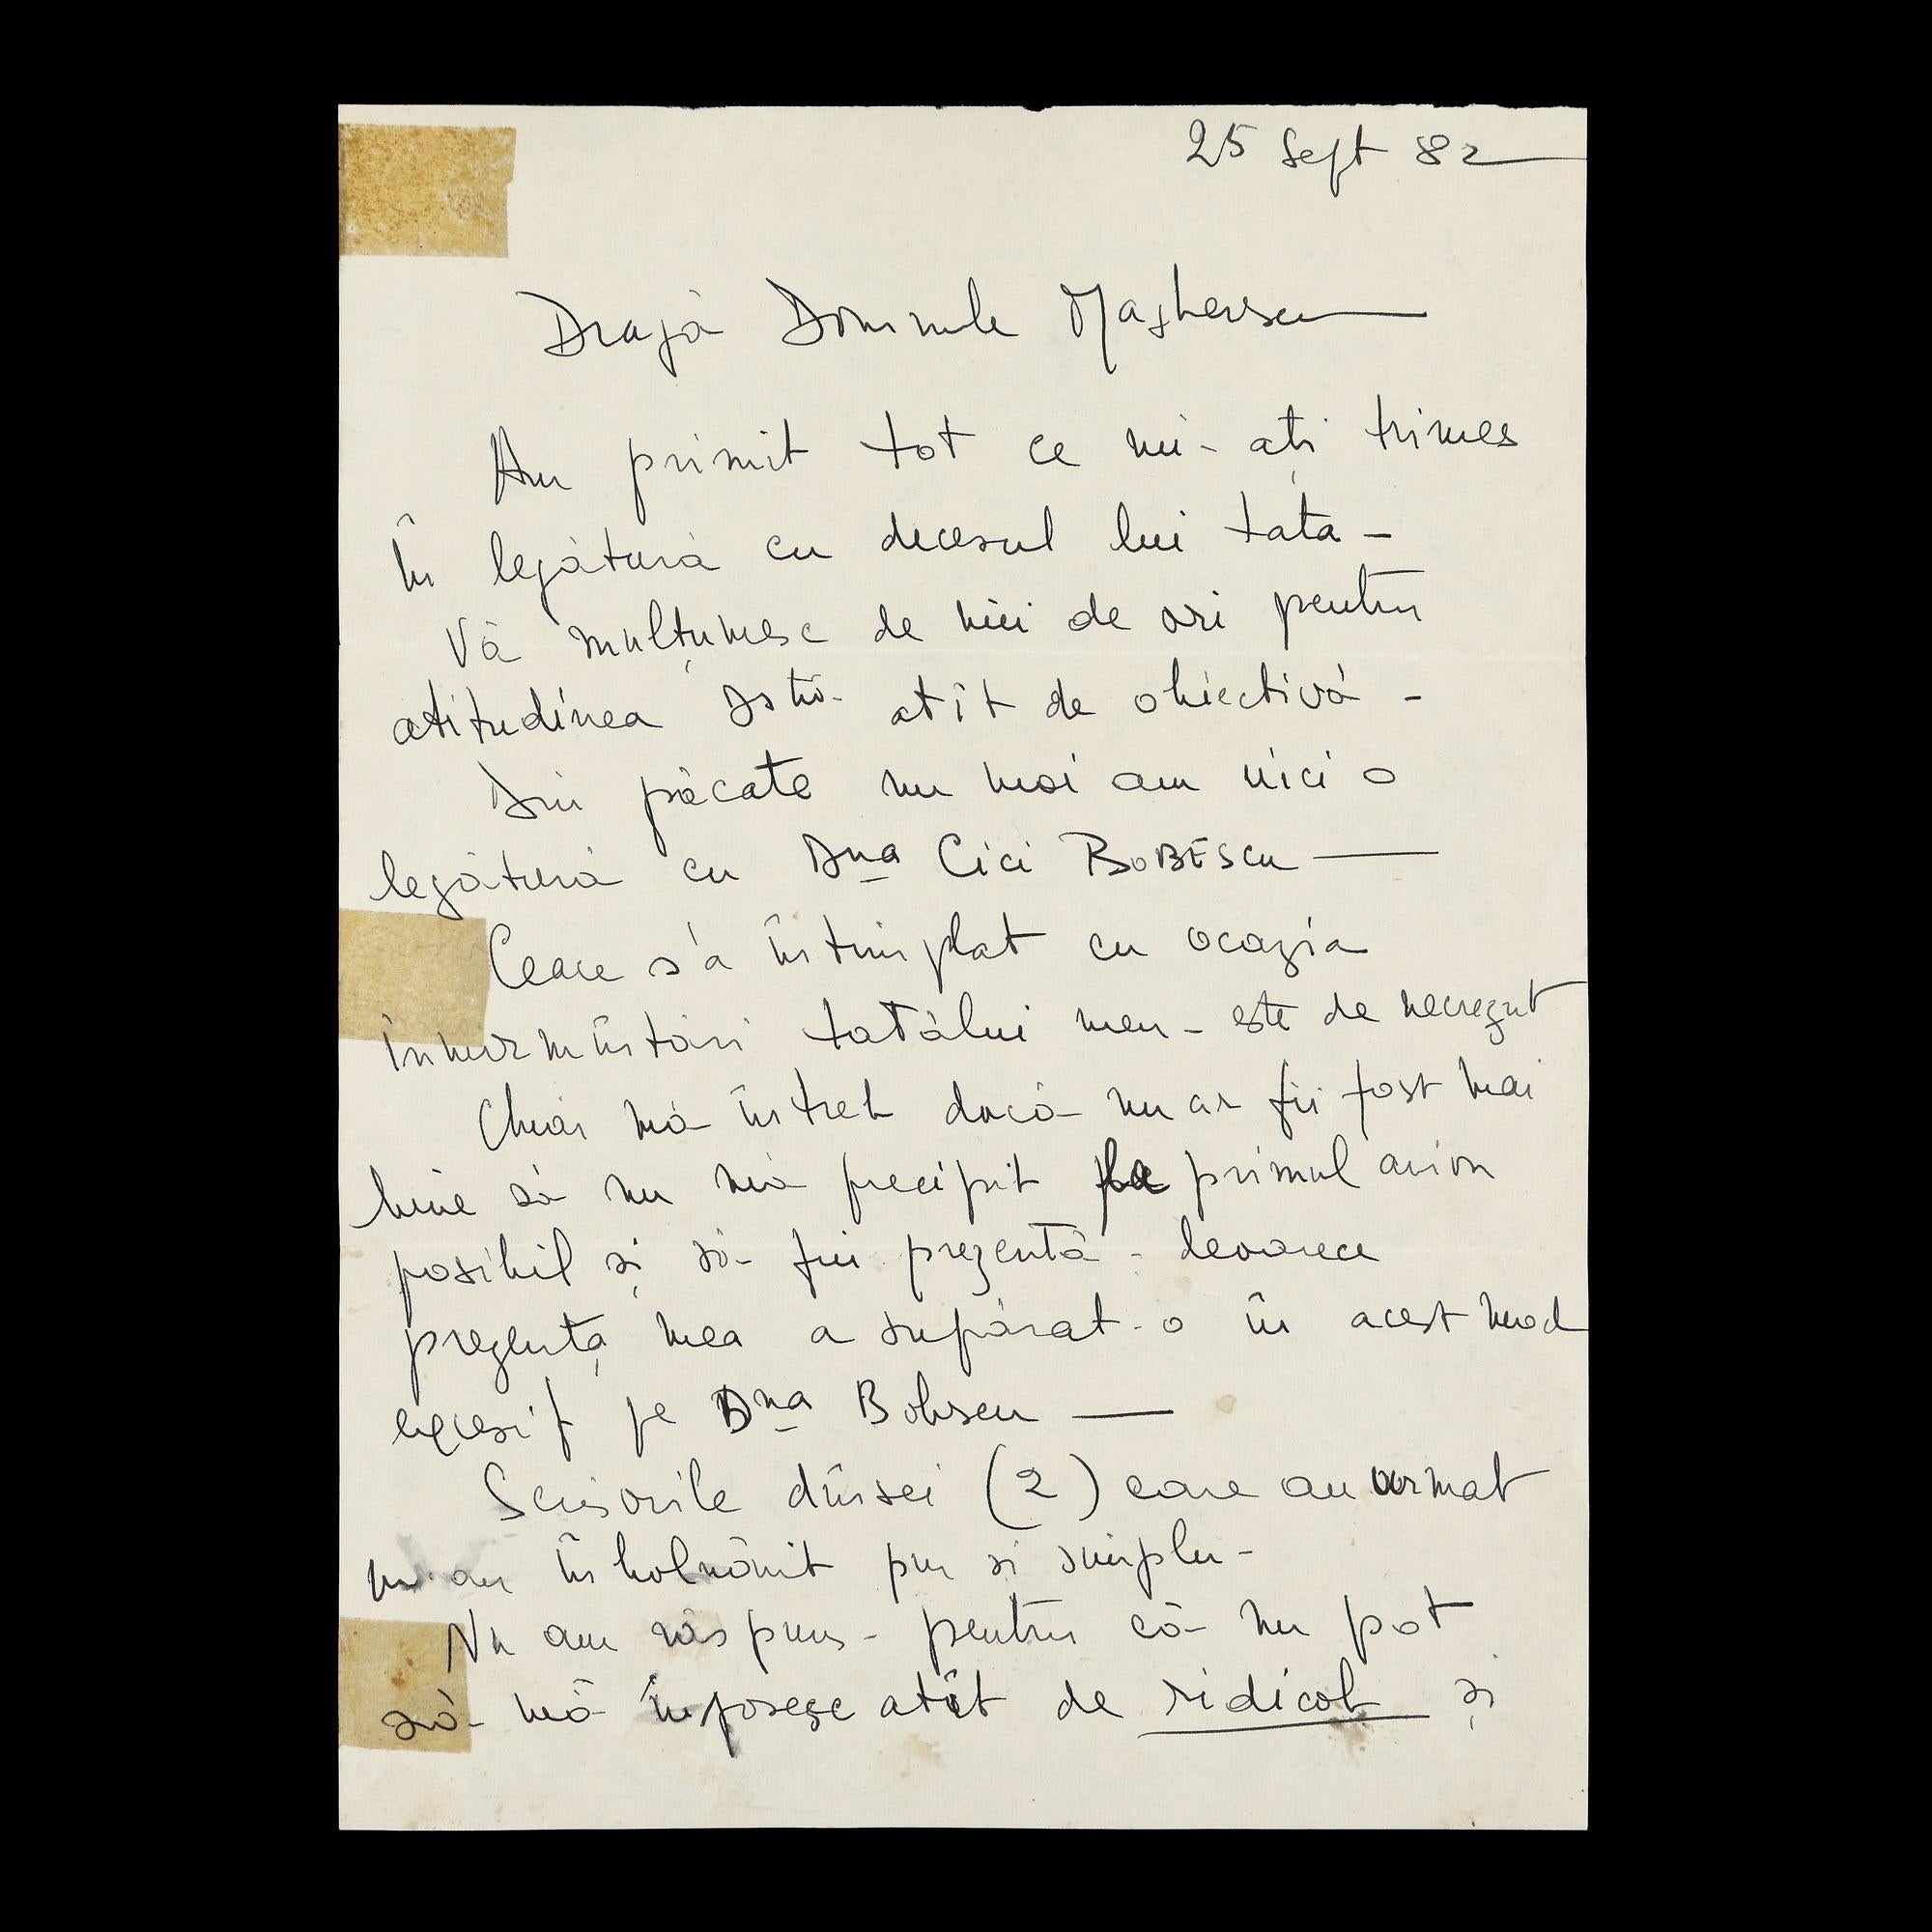 25 Sept 82
Dragă Domnule Magherescu
Am primit tot ce mi-ați trimes
în legătură cu decesul lui tata -
Vă mulțumesc de mii de ori pentru
atitudinea Dstră. atît de obiectivă -
Din păcate nu mai am nici o
legătură cu Dna Cici BOBESCU
Ceace s'a întimplat cu ocazia
înmormîntării tatălui meu - este de necrezut
Chiar mă întreb dacă nu ar fii fost mai
bine să nu mă precipit la primul avion
posibil și să fiu prezentă - deoarece
prezența mea a supărat-o în acest mod
excesif pe Dna Bobescu
Scrisorile dînsei (2) care au urmat
m'au îmbolnăvit pur si simplu -
Nu am răspuns - pentru că nu pot
să mă înjosesc atît de ridicol și